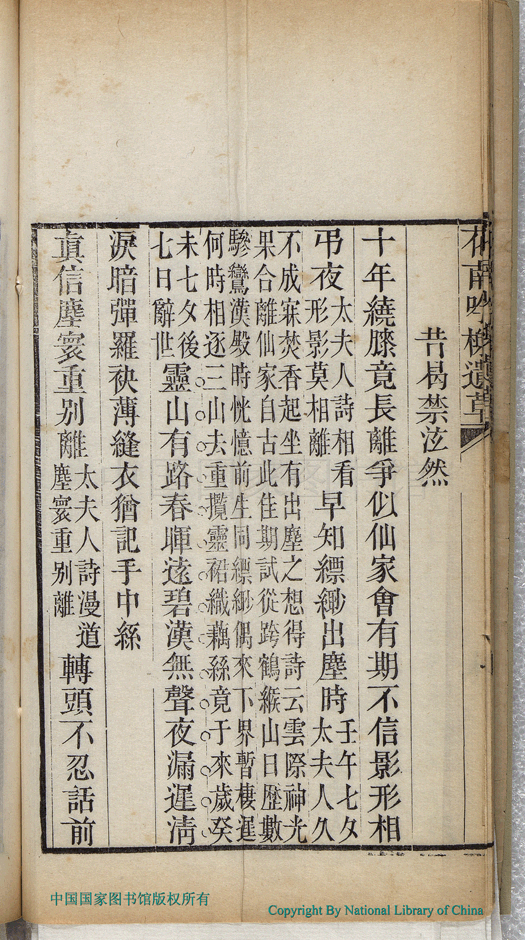 花南吟榭遺草
昔曷禁泫然
十年繞膝竟長離爭似仙家會有期不信影形相
弔夜太夫人詩相看形影莫相離早知縹緲出塵時壬午七夕太夫人久
不成寐焚香起坐有出塵之想得詩云雲際神光
果合離仙家自古此佳期試從跨鶴緱山日歷數
驂鸞漢殿時恍憶前生同縹緲偶來下界暫棲遲
何時相逐三山去重攬靈裾織藕絲竟于來歲癸
未七夕後七日辭世靈山有路春暉遠碧漢無聲夜漏遲淸
淚暗彈羅袂薄縫衣猶記手中絲
眞信塵寰重别離太夫人詩漫道塵寰重别離轉頭不忍話前
中国国家图书馆版权所有
Copyright By National Library of China